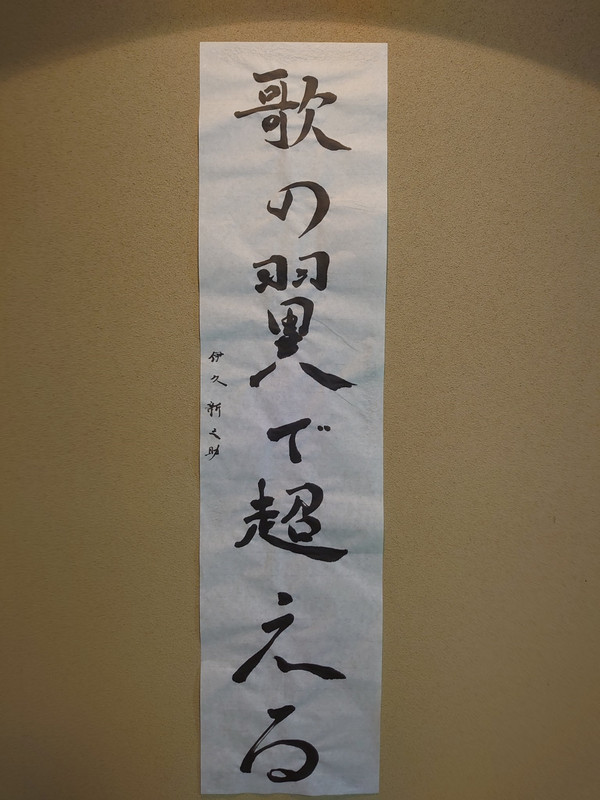 歌の翼で超える
伊久新之助